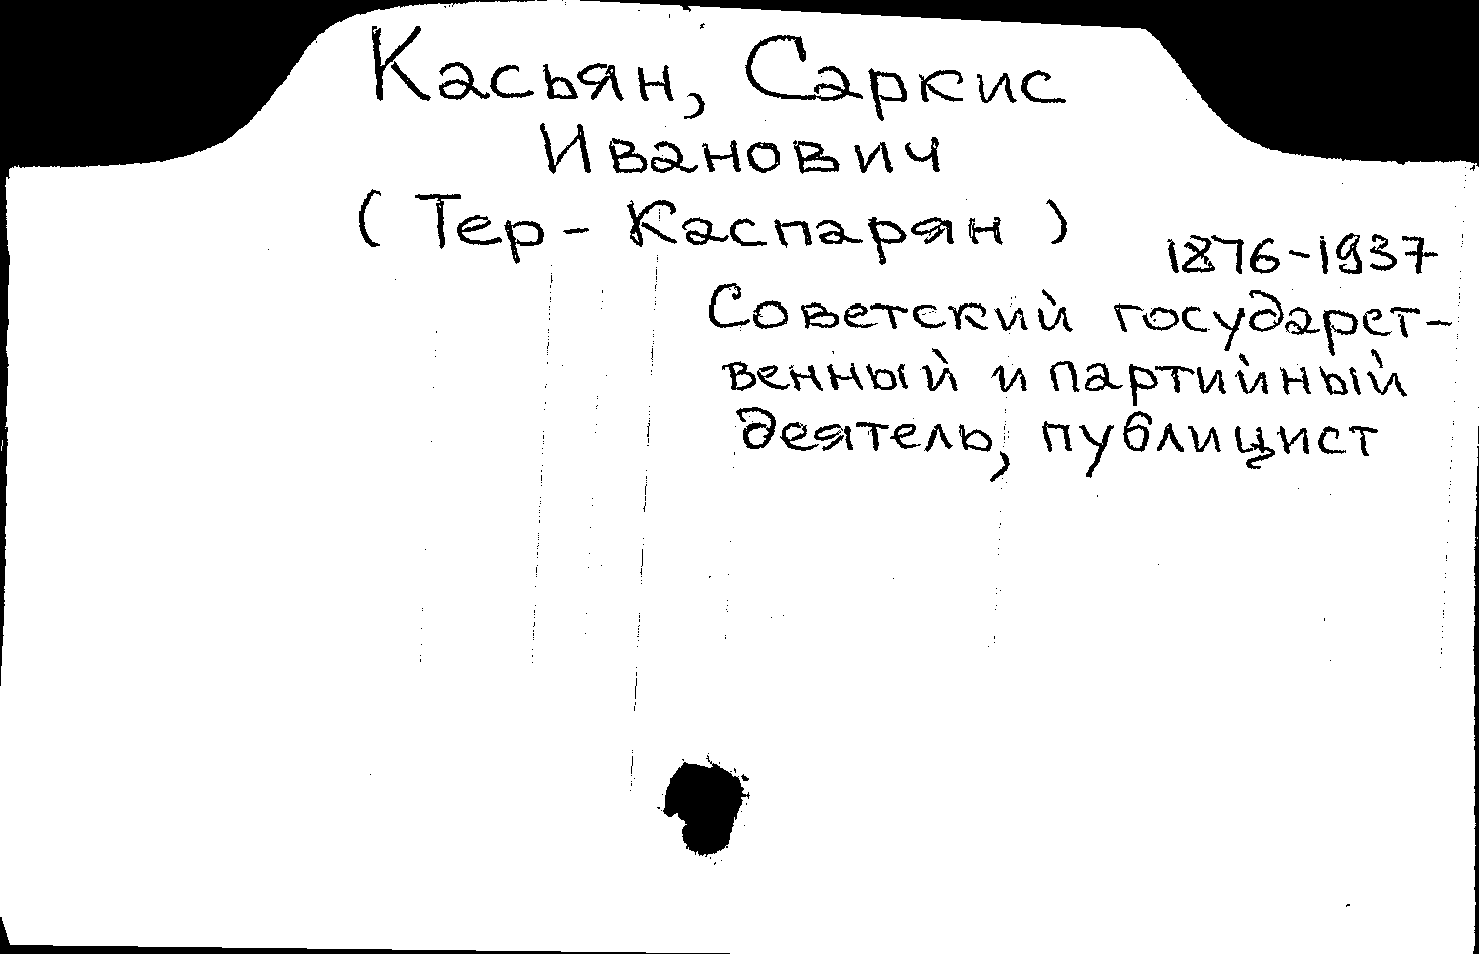 Касьян, Саркис
Иванович
(Тер-Каспарян)
1876-1937
Советский государст-
венный и партийный
деятель, публицист